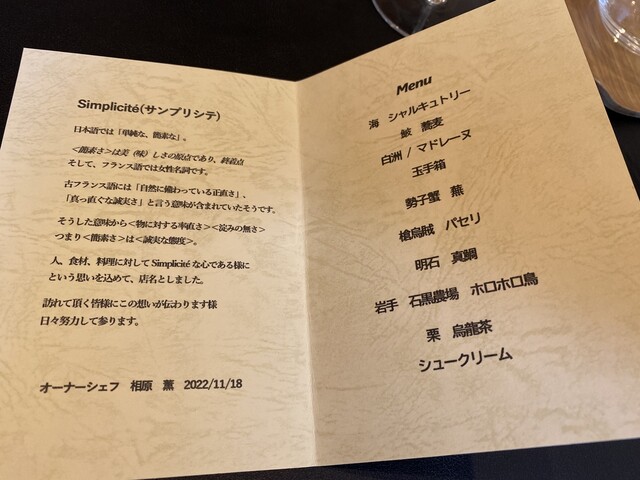 Simplicité(サンプリシテ)
日本語では「単純な、簡素な」。
＜簡素さ＞は美（味）しさの原点であり、終着点
そして、フランス語では女性名詞です。
古フランス語には「自然に備わっている正直さ」、
「真っ直ぐな誠実さ」と言う意味が含まれていたそうです。
そうした意味から＜物に対する率直さ＞＜淀みの無さ＞
つまり＜簡素さ＞は＜誠実な態度＞。
人、食材、料理に対して Simplicité な心である様に
という思いを込めて、店名としました。
訪れて頂く皆様にこの想いが伝わります様
日々努力して参ります。
オーナーシェフ 相原 薫 2022/11/18
Menu
海 シャルキュトリー
鮫 蕎麦
白洲 / マドレーヌ
玉手箱
勢子蟹 蕪
槍烏賊 パセリ
明石 真鯛
岩手 石黒農場 ホロホロ鳥
栗 烏龍茶
シュークリーム